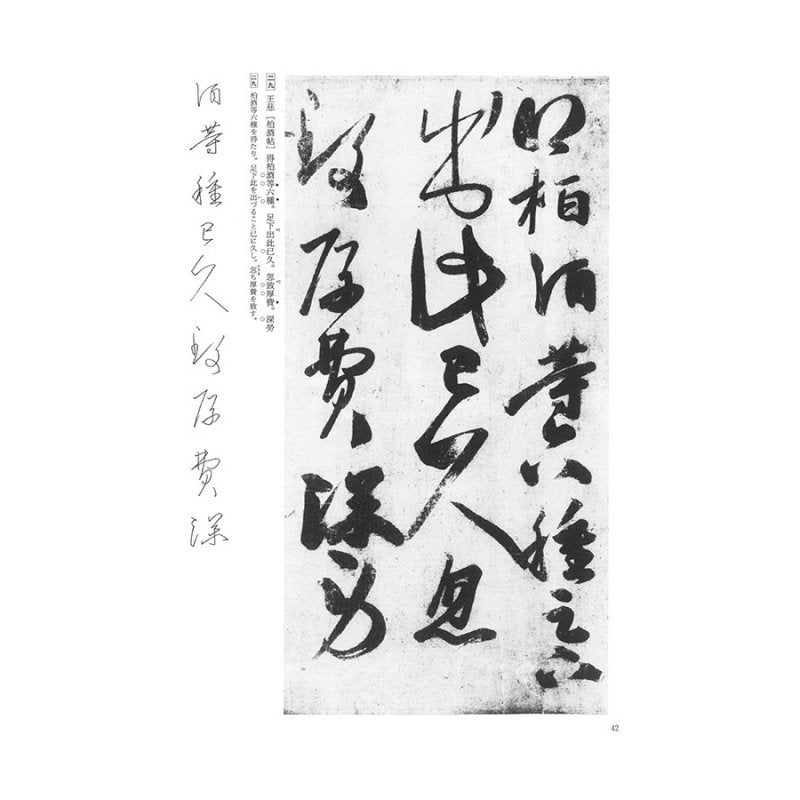 得柏酒等六種足下
出此已久忽
致厚費深勞
二九 王慈［柏酒帖］ 得柏酒等六種。足下出此已久。忽致厚費。深勞
二九 柏酒等六種を得たり。足下此を出づること已に久し。忽ち厚費を致す。
酒等種已久致厚費深
42